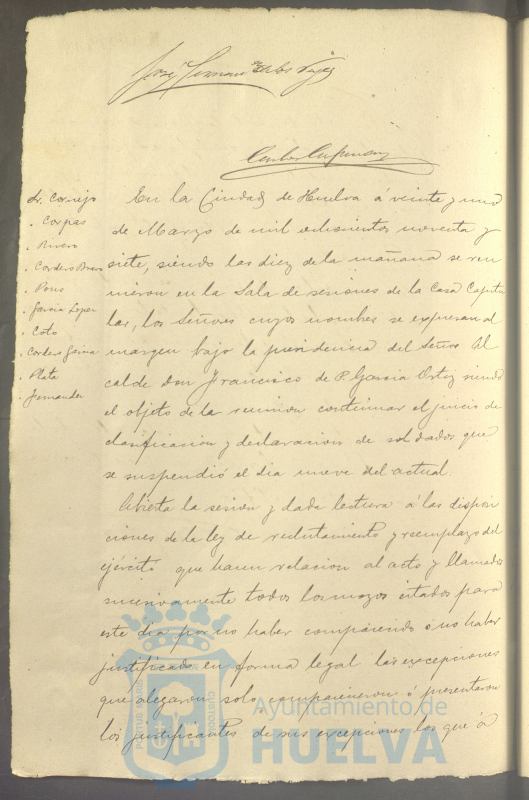 José Hernandez
Sr. Cornejo
" Corpas
" Rivero
" Cordero Bravo
" Pons
" Garcia Lopez
" Coto
" Cordero Garcia
" Plata
" Fernandez
En la Ciudad de Huelva á veinte y uno
de Marzo de mil ochocientos noventa y
siete, siendo las diez de la mañana se reu
nieron en la Sala de sesiones de la Casa Capitu
lar, los Señores cuyos nombres se expresan al
margen bajo la presidencia del Señor Al
calde Don Francisco de P. Garcia Ortiz siendo
el objeto de la reunion continuar el juicio de
clasificacion y declaracion de soldados que
se suspendió el dia nueve del actual.
Abierta la sesion y dada lectura á las disposi
ciones de la ley de reclutamiento y reemplazo del
ejército que hacen relacion al acto y llamados
sucesivamente todos los mozos citados para
este dia por no haber comparecido o no haber
justificado en forma legal las excepciones
que alegaron solo comparecieron ó presentaron
los justificantes de sus excepciones los que á
Ayuntamiento de
HUELVA